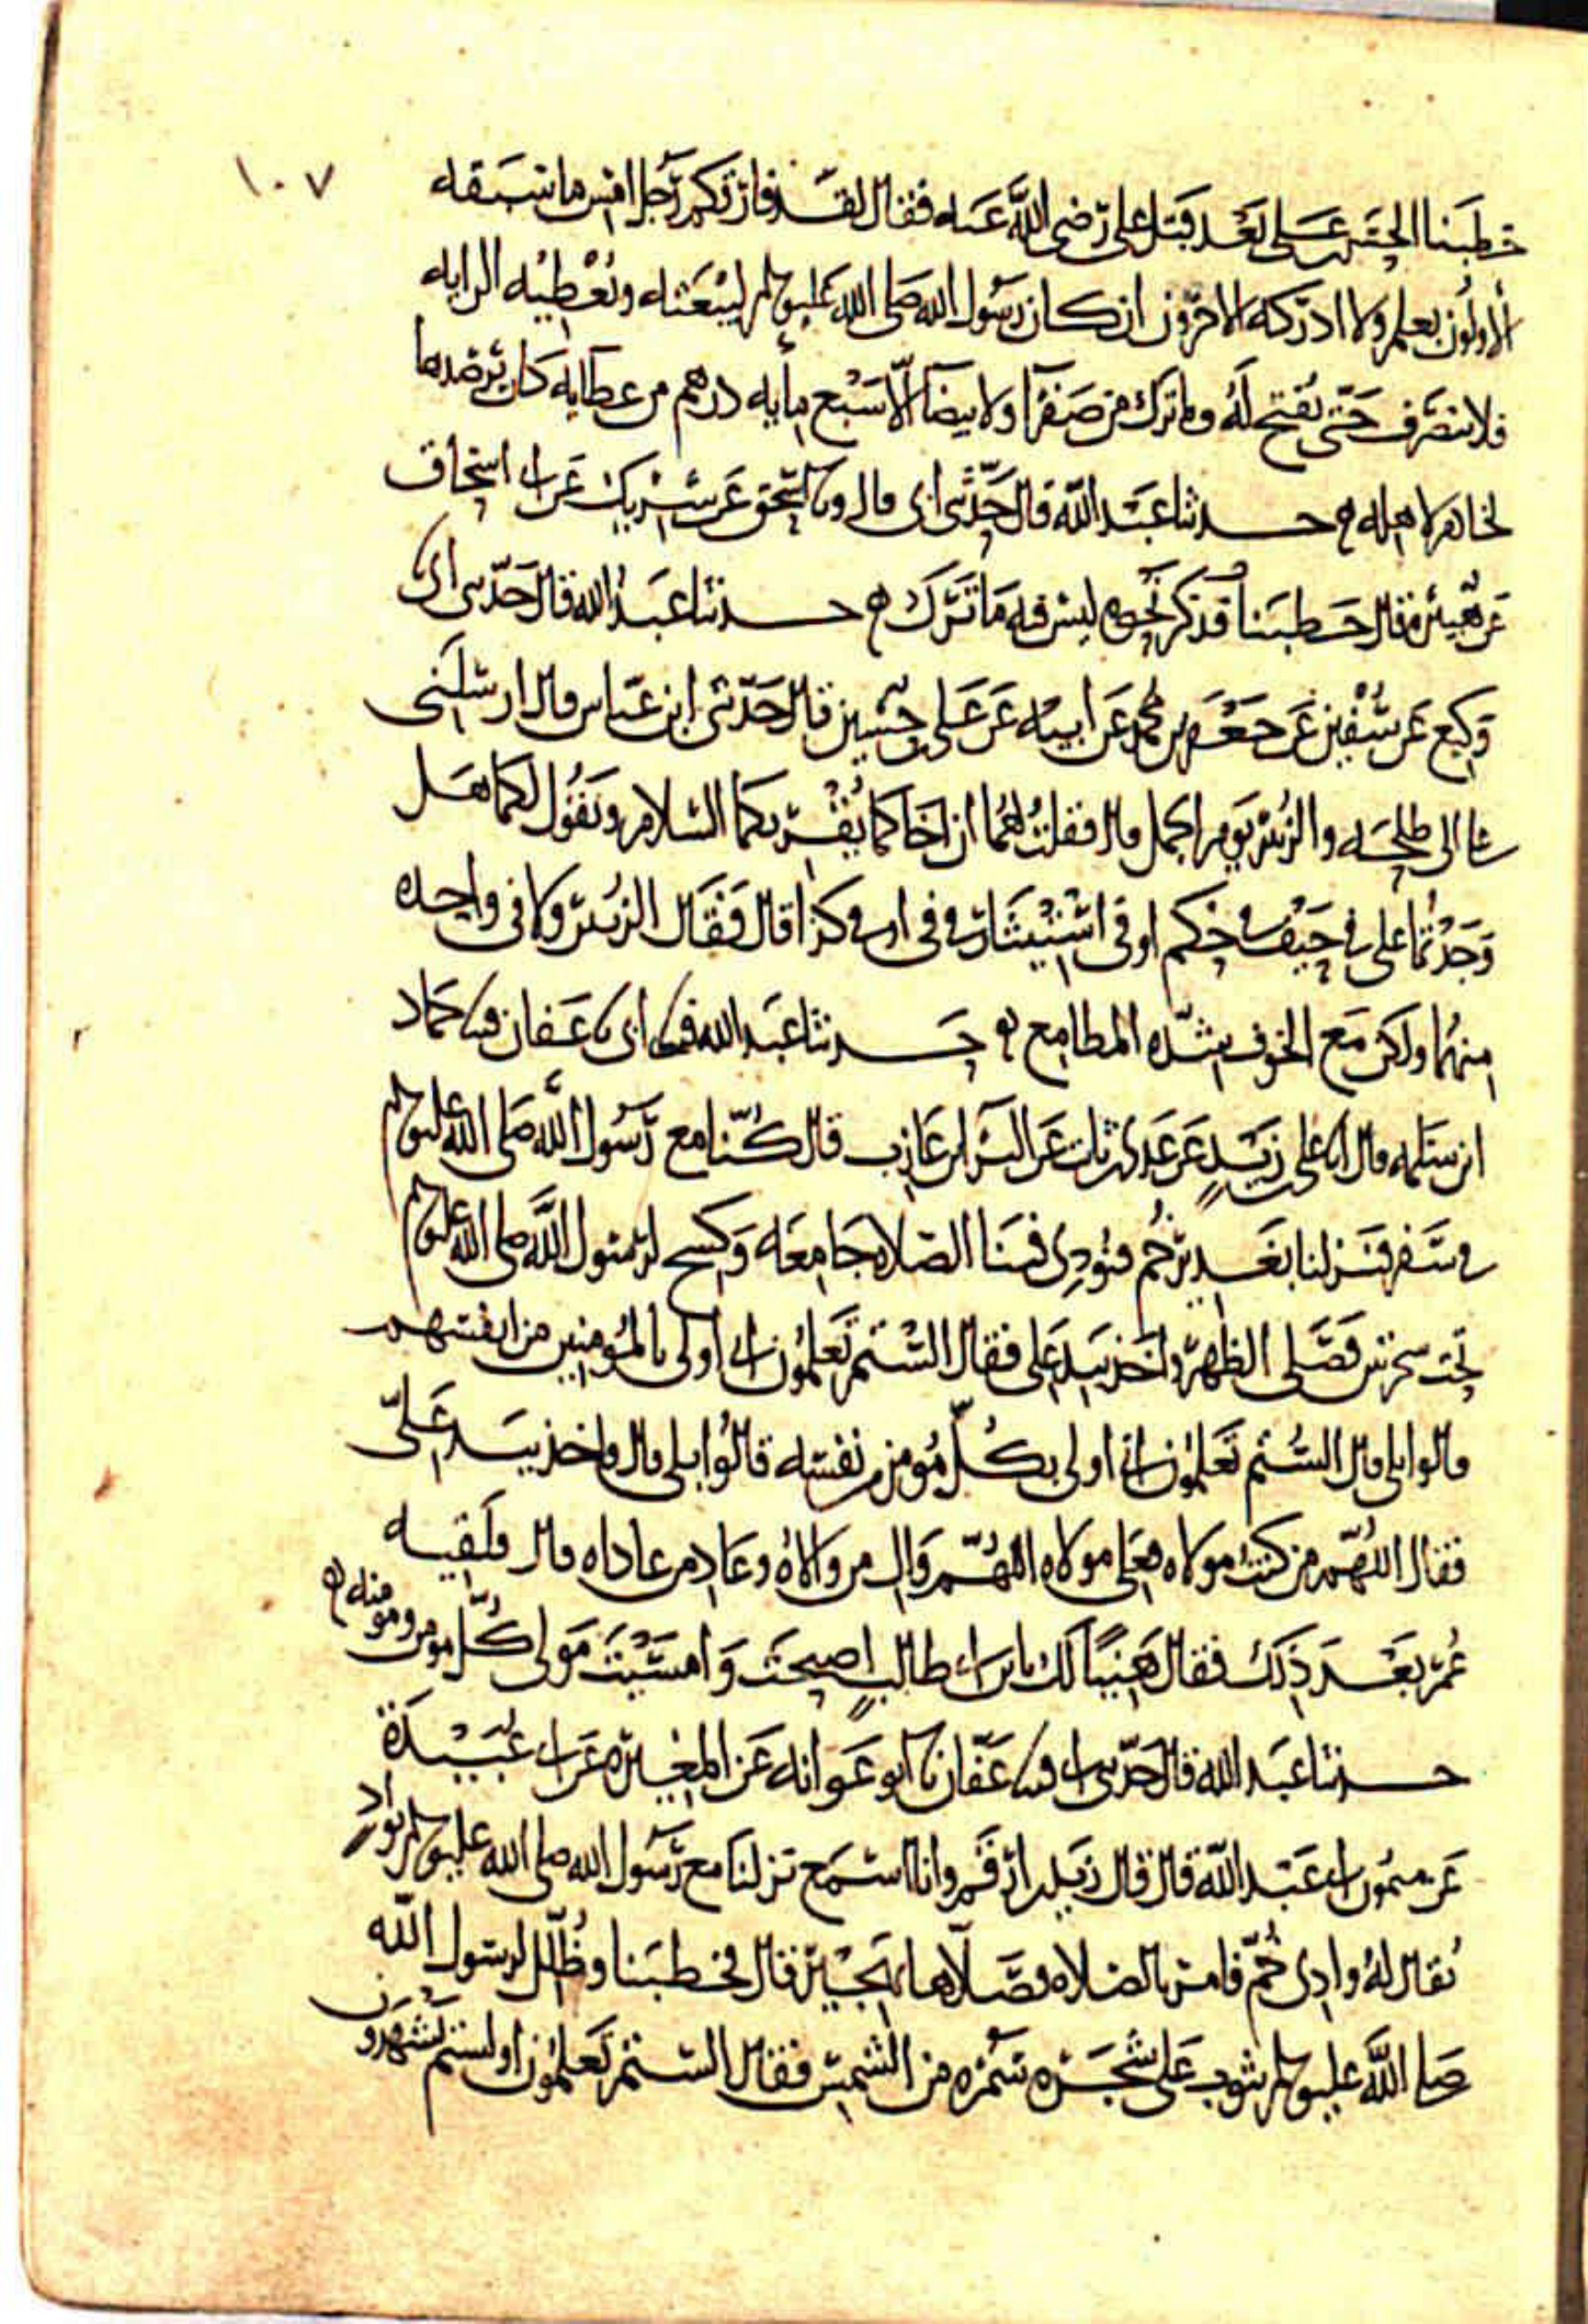 ١٠٧
خطبنا الحسن بن علي بعد قتل علي رضي الله عنه فقال لقد فارقكم رجل امس ما سبقه
الاولون بعلم ولا ادركه الاخرون ان كان رسول الله صلى الله عليه وسلم ليبعثه ويعطيه الرايه
فلا ينصرف حتى يفتح له وما ترك من صفرا ولا بيضا الا سبع مايه درهم من عطايه كان يرصدها
لخادم لاهله حدثنا عبد الله قال حدثني ابي قال وكيع عن شريك عن ابي اسحاق
عن هبيره قال خطبنا فذكر نحوه ليس فيه ما ترك حدثنا عبد الله قال حدثني ابي نا
وكيع عن سفين عن جعفر بن محمد عن ابيه عن علي بن حسين قال حدثني ابن عباس قال ارسلني
الى طلحه والزبير يوم الجمل قال فقلت لهما ان اخاكما يقريكما السلام ويقول لكما هل
وجدتما علي في حيف في حكم او في استيثار في في او في كذا قال فقال الزبير ولا في واحده
منهما ولكن مع الخوف شده المطامع حدثنا عبد الله ابي نا عفان نا حماد
ابن سلمه قال انا علي بن زيد عن عدي بن ثابت عن البرا بن عازب قال كنا مع رسول الله صلى الله عليه وسلم
في سفر فنزلنا بغدير خم فنودي فينا الصلاه جامعه وكسح لرسول الله صلى الله عليه وسلم
تحت شجرتين فصلى الظهر واخذ بيد علي فقال الستم تعلمون اني اولى بالمومنين من انفسهم
قالوا بلى قال الستم تعلمون اني اولى بكل مومن من نفسه قالوا بلى قال فاخذ بيد علي
فقال اللهم من كنت مولاه فعلي مولاه اللهم وال من والاه وعاد من عاداه قال فلقيه
عمر بعد ذلك فقال هنيئا لك يا بن ابي طالب اصبحت وامسيت مولى كل مومن ومومنه
حدثنا عبد الله قال حدثني ابي نا عفان نا ابو عوانه عن المغيره عن ابي عبيدة
عن ميمون ابي عبد الله قال قال زيد بن ارقم وانا اسمع نزلنا مع رسول الله صلى الله عليه وسلم بواد
يقال له وادي خم فامر بالصلاه فصلاها بهجير قال فخطبنا وظلل لرسول الله
صلى الله عليه وسلم بثوب على شجره سمره من الشمس فقال الستم تعلمون اولستم تشهدون